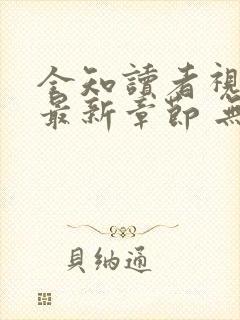 全知讀者視
最新章節 無
貝納通